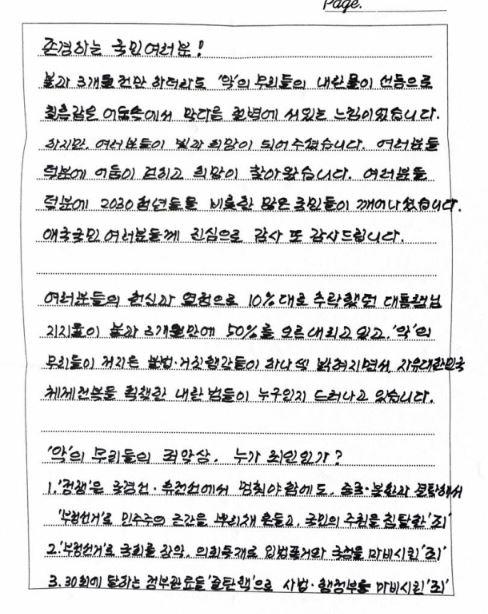 Page.
존경하는 국민여러분!
불과 3개월 전만 하더라도 '악'의 무리들의 내란몰이 선동으로
칠흑같은 어둠속에서 막다른 절벽에 서있는 느낌이었습니다.
하지만, 여러분들이 빛과 희망이 되어 주셨습니다. 여러분들
덕분에 어둠이 걷히고 희망이 찾아왔습니다. 여러분들
덕분에 2030 청년들을 비롯한 많은 국민들이 깨어나셨습니다.
애국국민 여러분들께 진심으로 감사 또 감사드립니다.
여러분들의 헌신과 열정으로 10%대로 추락했던 대통령님
지지율이 불과 3개월만에 50%를 오르내리고 있고, '악'의
무리들이 저지른 불법·거짓행각들이 하나씩 밝혀지면서 자유대한민국
체제전복을 획책한 내란 범들이 누구인지 드러나고 있습니다.
'악'의 무리들의 죄악상, 누가 죄인인가?
1. '정쟁'은 국경선·휴전선에서 멈춰야 함에도, 중국·북한과 결탁해서
'부정선거'로 민주주의 근간을 뿌리채 흔들고, 국민의 주권을 침탈한 '죄'
2. '부정선거'로 국회를 장악, 의회독재로 입법폭거와 국정을 마비시킨 '죄'
3. 30회에 달하는 정부관료들 '줄탄핵'으로 사법·행정부를 마비시킨 '죄'